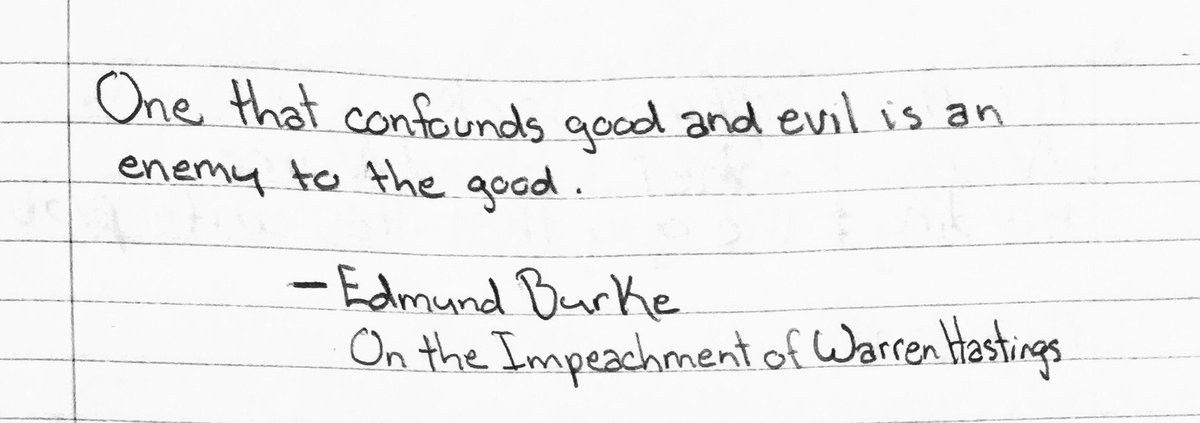 One that confounds good and evil is an
enemy to the good.
- Edmund Burke
On the Impeachment of Warren Hastings